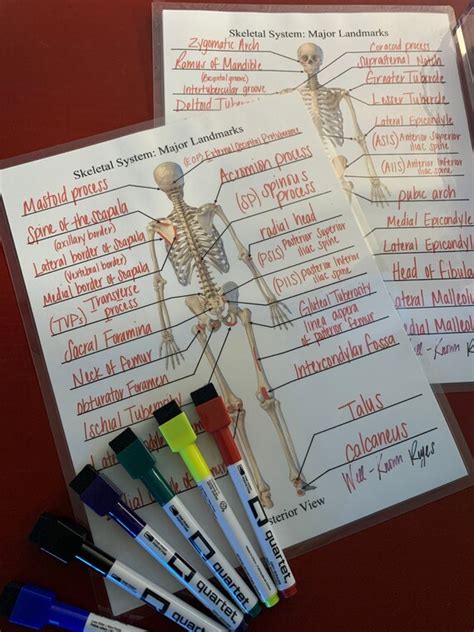 Skeletal System: Major Landmarks
Zygomatic Arch
Ramus of Mandible
(Bicipital groove)
Intertubercular groove
Deltoid
Coracoid process
Suprasternal Notch
Greater Tubercle
Lesser Tubercle
Lateral Epicondyle
(ASIS) Anterior Superior
iliac spine
(AIIS) Anterior Inferior
iliac spine
pubic arch
Medial Epicondyle
Lateral Epicondyle
Head of Fibula
Lateral
Medial
Well-Known
Skeletal System: Major Landmarks
Mastoid process
Spine of the scapula
(axillary border)
Lateral border of scapula
(Vertebral border)
Medial border of scapula
(TVPs) Transverse
process
Sacral Foramina
Neck of femur
Obturator Foramen
Ischial Tuberosity
(EOP) External Occipital Protuberance
Acromion Process
(SP) Spinous
process
radial head
(PSIS) Posterior Superior
iliac spine
(PIIS) Posterior Inferior
iliac spine
Gluteal Tuberosity
linea aspera
of posterior femur
Intercondylar Fossa
Talus
Calcaneus
Well-Known
Posterior View
quartet
quartet
quartet
quartet
quartet